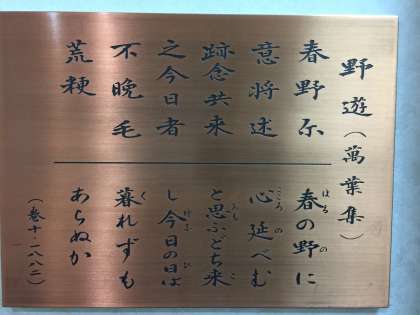 野遊（萬葉集）
春野尓
意将述
跡念共来
之今日者
不晩毛
荒粳
春の野に
心延べむ
と思ふどち来
し今日の日は
暮れずも
あらぬか
（巻十・一八八二）